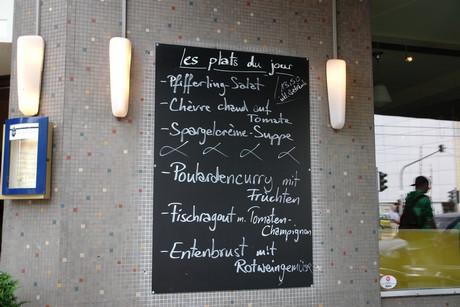 les plats du jour
- Pfifferling-Salat
- Chèvre chaud auf
Tomate
- Spargelcrème-Suppe
- Poulardencurry mit
Früchten
- Fischragout m. Tomaten-
Champignon
- Entenbrust mit
Rotweingemüse